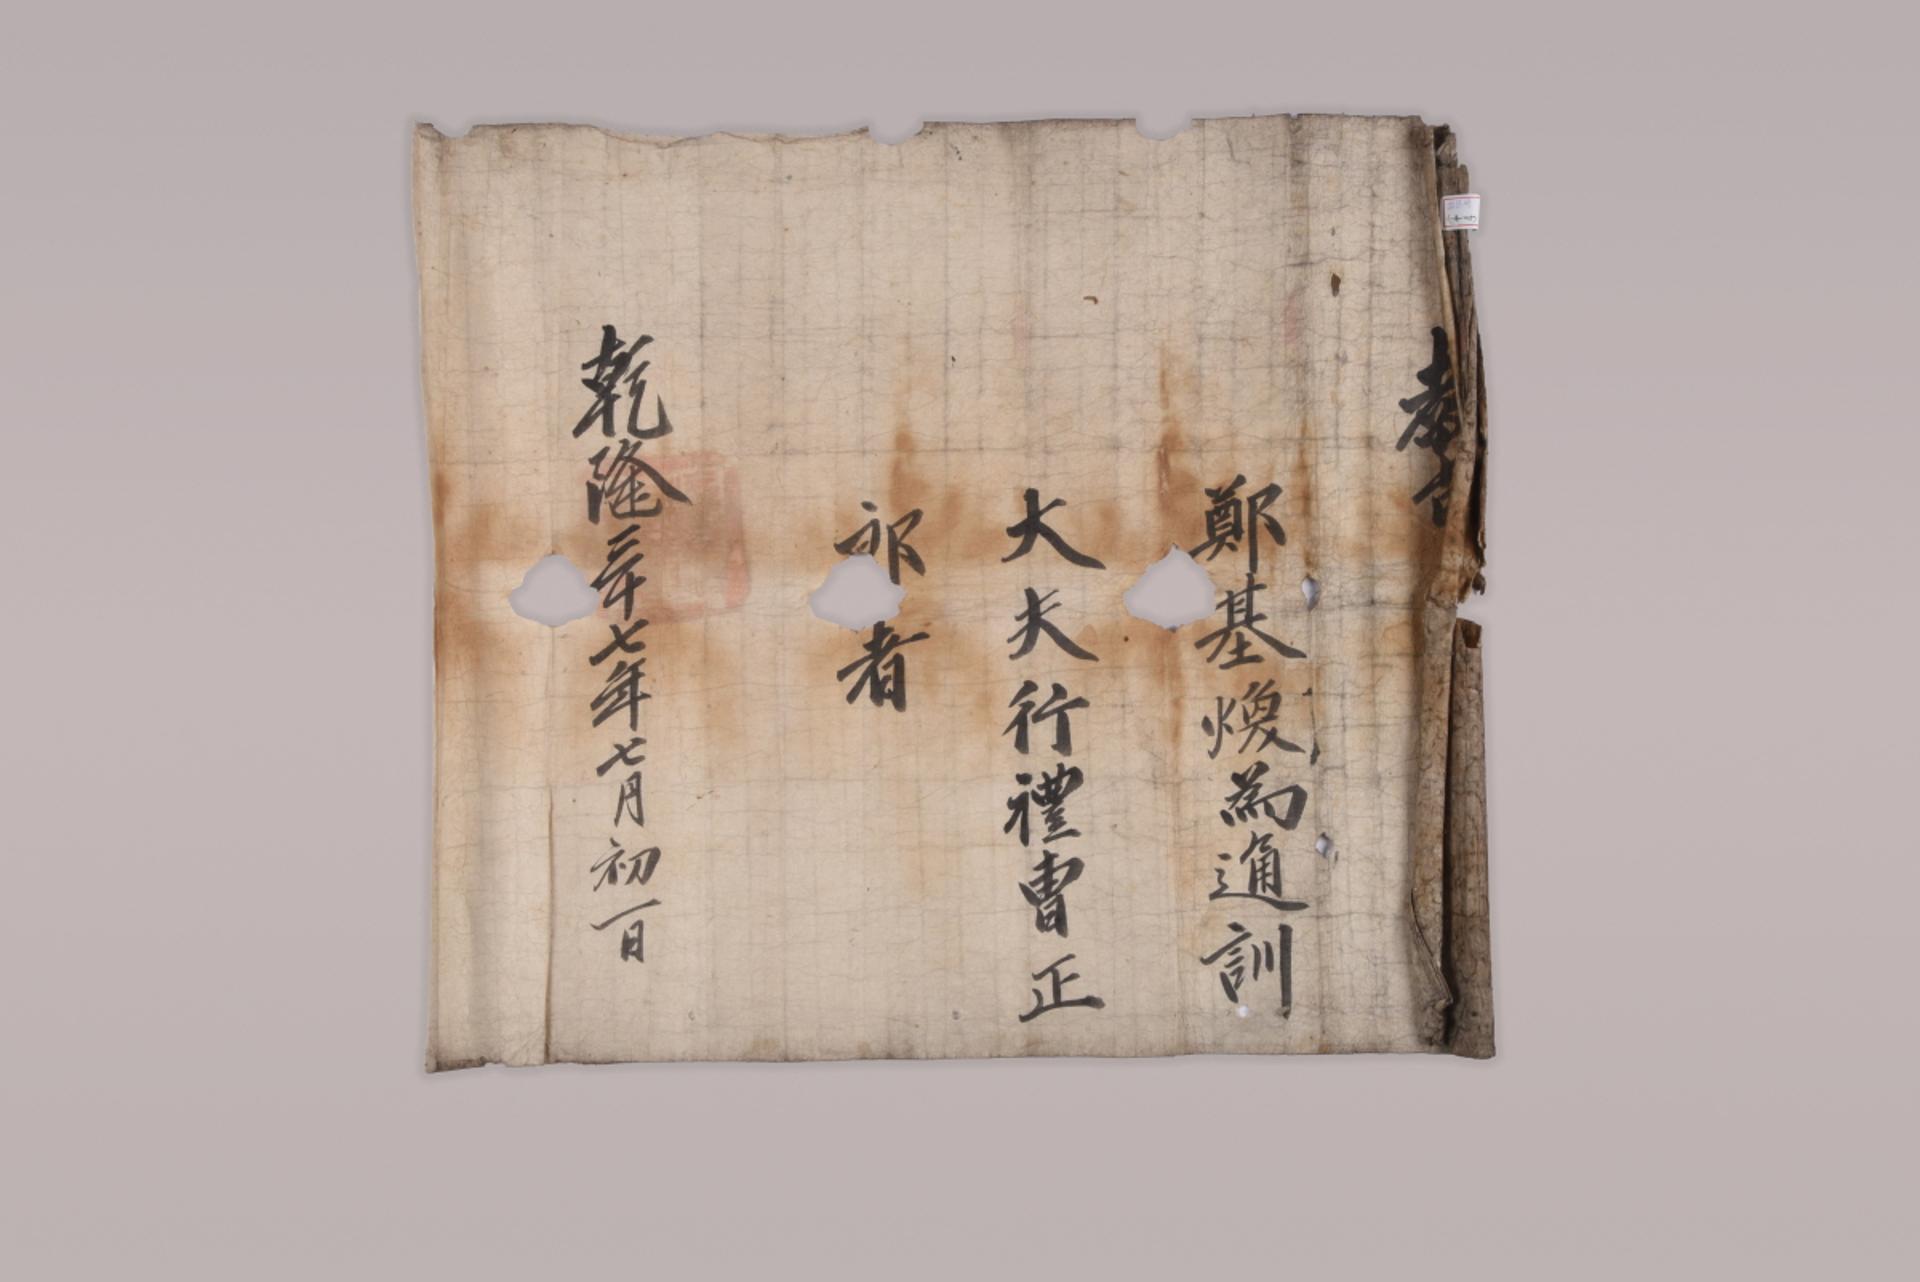 奉
鄭基煥為通訓
大夫行禮曹正
郎者
乾隆三十七年七月初一日